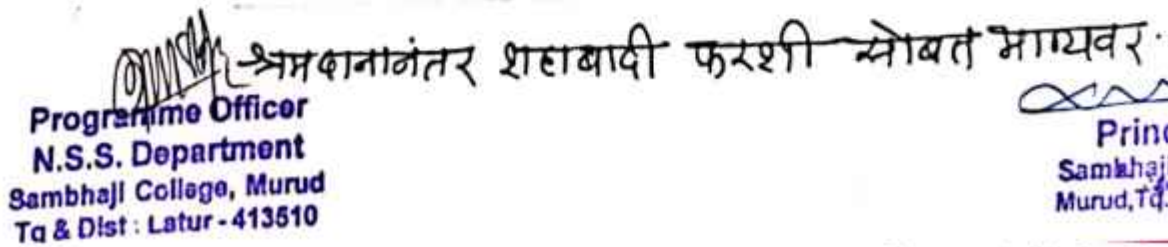 श्रमदानानंतर शहाबादी फरशी सोबत मान्यवर.
Programme Officer
N.S.S. Department
Sambhaji College, Murud
Tq & Dist : Latur - 413510
Princ
Sambhaji
Murud, Tq.